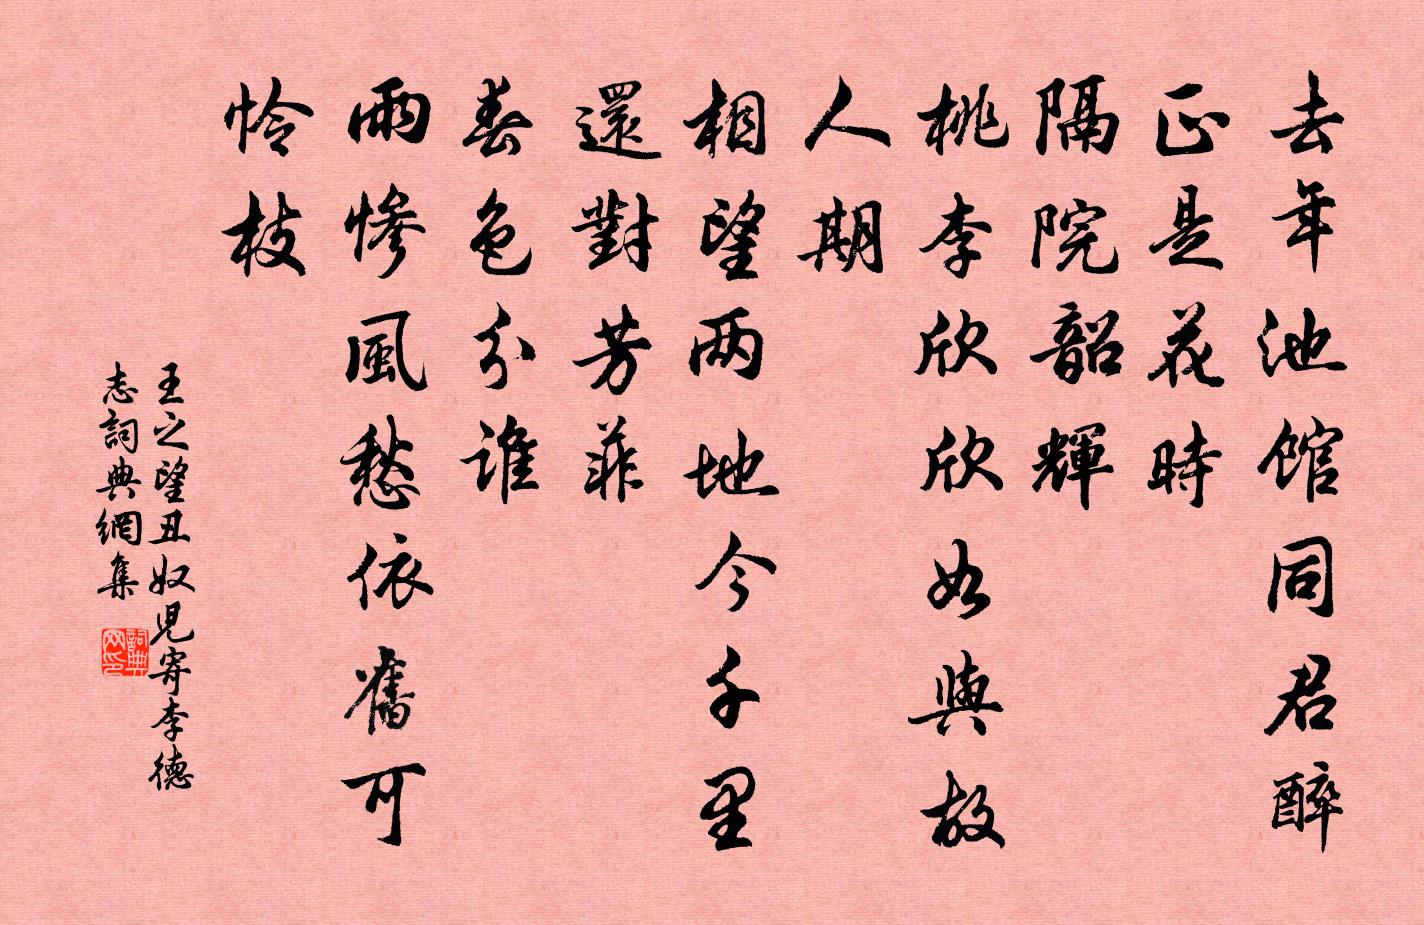 去年池館同君醉
正是花時
隔院韶輝
桃李欣欣如與故
人期
相望两地今千里
還對芳菲
春色分誰
雨慘風愁依舊可
怜枝
王之望丑奴児寄李德
志詞典網集
詞典
网印